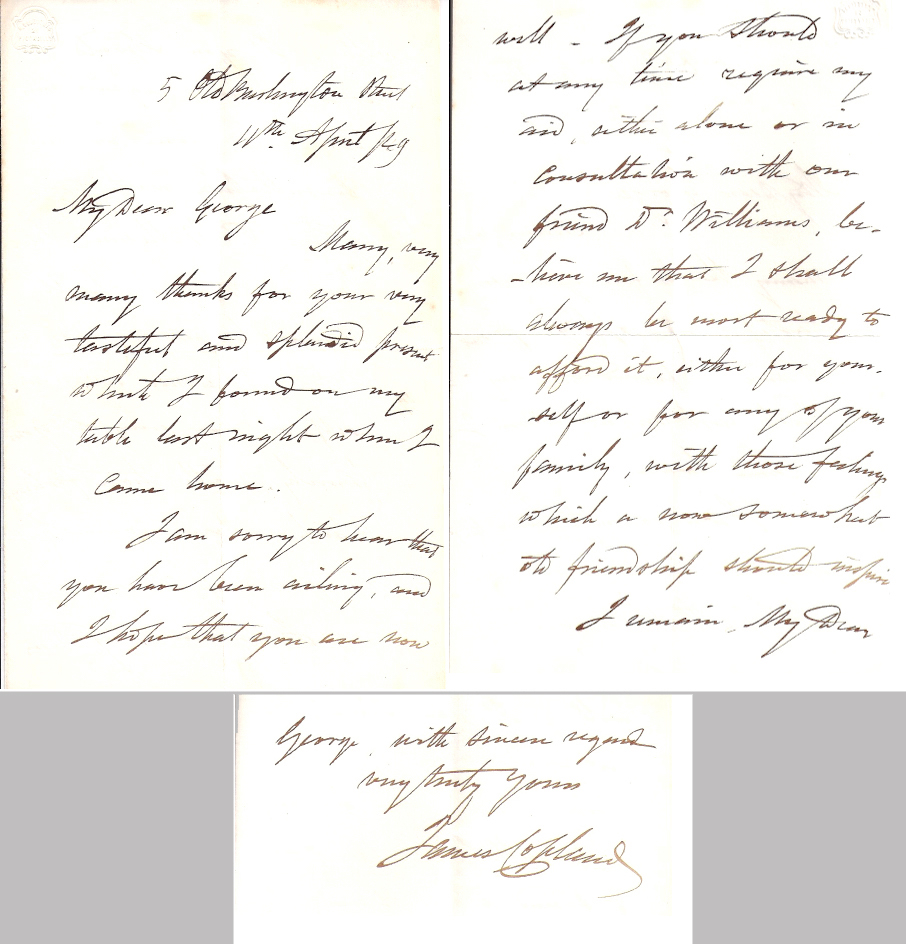 5 Old Burlington Street
11th. April /49
My Dear George
Many, very
many thanks for your very
tasteful and splendid present
which I found on my
table last night when I
came home.
I am sorry to hear that
you have been ailing, and
I hope that you are now
well - If you should
at any time require my
aid, either alone or in
consultation with our
friend Dr. Williams, be-
-lieve me that I shall
always be most ready to
afford it, either for your-
self or for any of your
family, with those feelings
which a now somewhat
old friendship should inspire
I remain, My Dear
George, with sincere regard
very truly Yours
James Copland